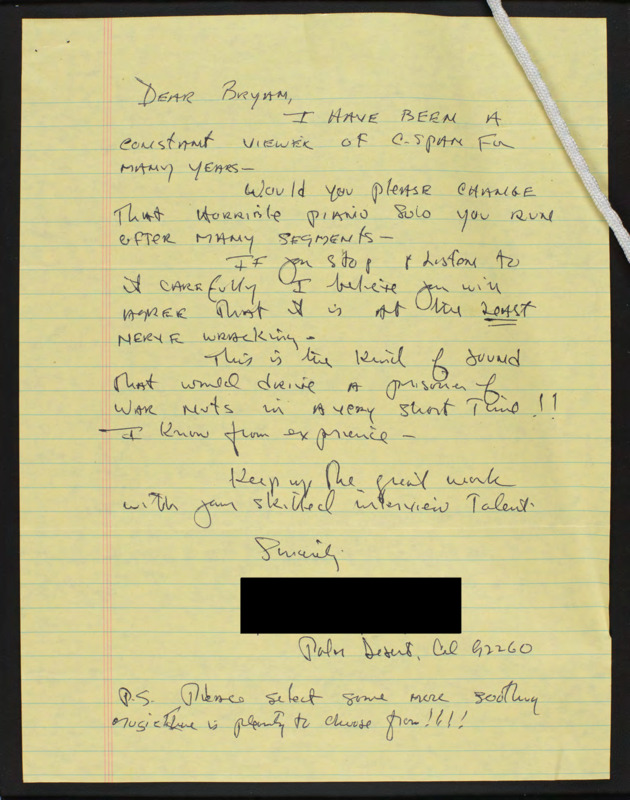 DEAR BRYAN,
I HAVE BEEN A
CONSTANT VIEWER OF C-SPAN FOR
MANY YEARS—
WOULD YOU PLEASE CHANGE
THAT HORRIBLE PIANO SOLO YOU RUN
AFTER MANY SEGMENTS—
IF you stop & Listen to
it CAREfully I believe you will
AGREE THAT it is At the LEAST
NERVE WRACKING.
This is the kind of sound
that would drive A prisoner of
WAR NUTS in A VERY short Time!!
I know from exprience —
Keep up the great work
with your skilled interview Talent.
Sincerely,
Palm Desert, Cal 92260
P.S. Please select some more soothing
music there is plenty to choose from!!!!